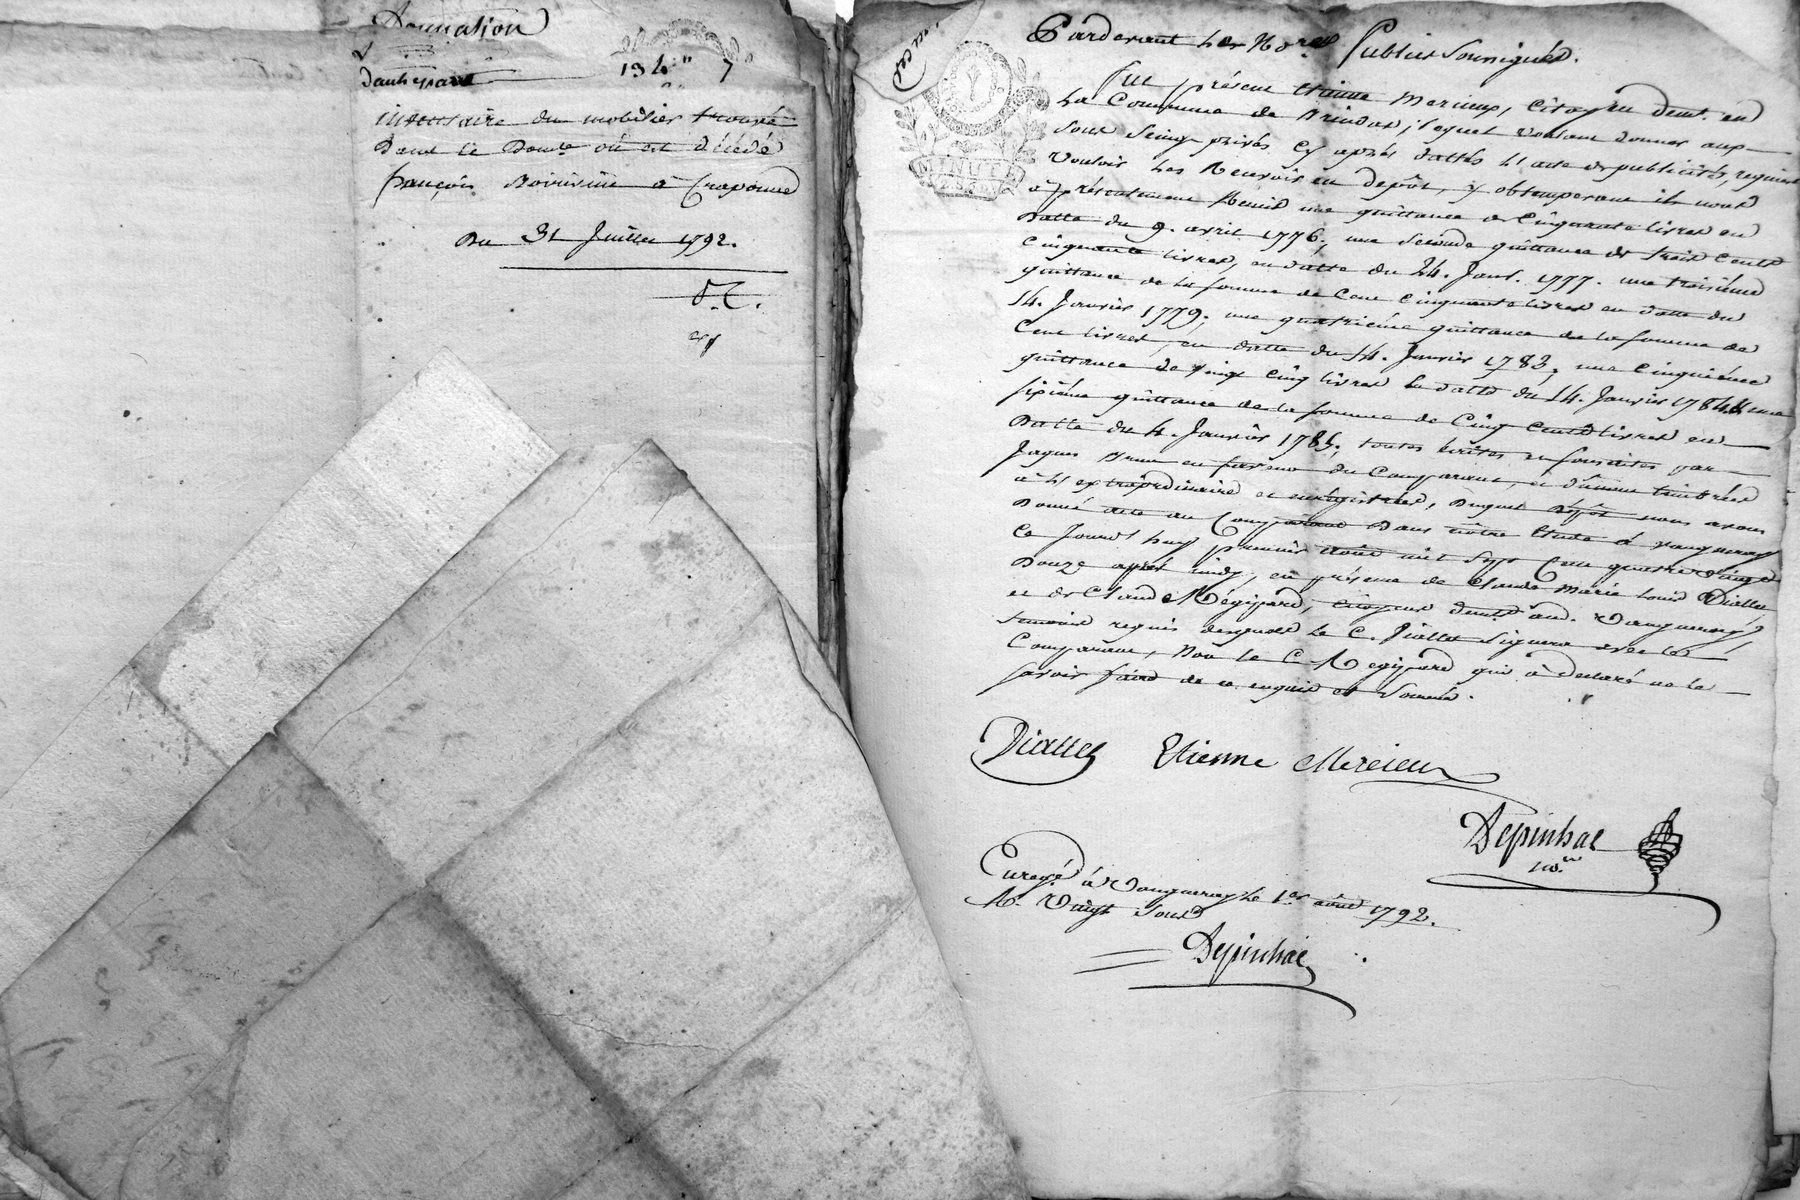 Donnation
&
d'autre part
134 7
inventaire du mobilier trouvé
Dans le Domle où est décédé
françois Boiriviere à Craponne
Du 31 Juillet 1792.
Pardevant Les Nores Publics Soussignés.
Fut présent Etienne Mercieux, Citoyen demt. en
La Commune de Brindas; lequel voulant donner aux
sous seings privés cy après dattés et acte de publicités, requiert
vouloir Les Recevoir en depôt, y obtemperant il nous
à présentement Remis une quittance de Cinquante livres en
Datte du 9. avril 1776; une seconde quittance de trois Cents
Cinquante livres, en datte du 24. Janv. 1777. une troisième
quittance de la somme de Cent Cinquante livres en datte du
14. Janvier 1779; une quatrième quittance de la somme de
Cent livres, en datte du 14. Janvier 1783; une Cinquième
quittance de vingt Cinq livres en datte du 14. Janvier 1784 & une
sixième quittance de la somme de Cinq Cents livres en
Datte du 4. Janvier 1785; toutes écrites et souscrites par
Jaques Brun en faveur du Comparant, et dument timbrées
à l'extraordinaire et enregistrées, Duquel dépôt nous avons
Donné acte au Comparant Dans nôtre Etude à vaugneray
Ce Jourd'huy premier Août mil Sept Cent quatre vingt
Douze après midy, en présence de Claude Marie Louis Diallet,
et de Claude Mégissard, citoyens demts. aud. Vaugneray,
temoins requis desquels Le C. Diallet Signera avec le
Comparant, Non le C. Megissard qui à declaré ne le
savoir faire de ce enquis et Sommé.
Diallet Etienne Mercieux
Depinhac
no.re
Enregé à Vaugneray Le 1er août 1792.
R. Vingt Sous
Depinhac